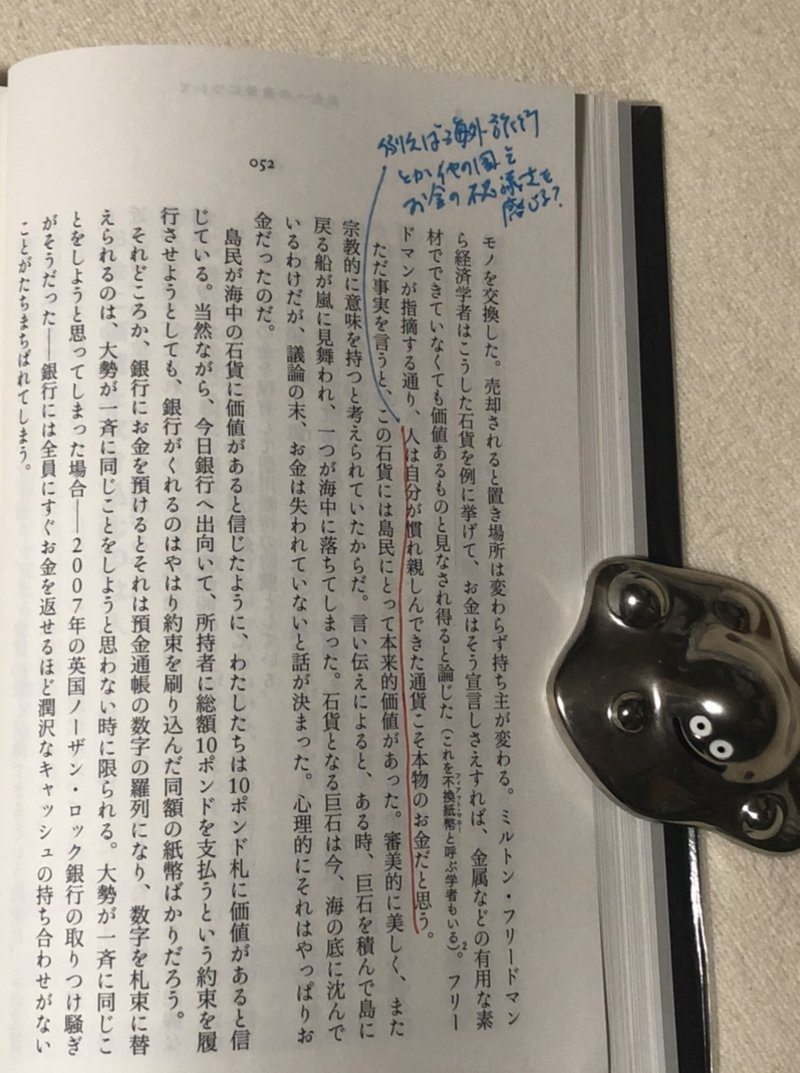 052
例えば海外旅行
とか他の国と
お金の
感じる?
モノを交換した。売却されると置き場所は変わらず持ち主が変わる。ミルトン・フリードマン
ら経済学者はこうした石貨を例に挙げて、お金はそう宣言しさえすれば、金属などの有用な素
材でできていなくても価値あるものと見なされ得ると論じた(これを不換紙幣と呼ぶ学者もいる)2。フリー
フィアット・マネー
ドマンが指摘する通り、人は自分が慣れ親しんできた通貨こそ本物のお金だと思う。
ただ事実を言うと、この石貨には島民にとって本来的価値があった。審美的に美しく、また
宗教的に意味を持つと考えられていたからだ。言い伝えによると、ある時、巨石を積んで島に
戻る船が嵐に見舞われ、一つが海中に落ちてしまった。石貨となる巨石は今、海の底に沈んで
いるわけだが、議論の末、お金は失われていないと話が決まった。心理的にそれはやっぱりお
金だったのだ。
島民が海中の石貨に価値があると信じたように、わたしたちは10ポンド札に価値があると信
じている。当然ながら、今日銀行へ出向いて、所持者に総額10ポンドを支払うという約束を履
行させようとしても、銀行がくれるのはやはり約束を刷り込んだ同額の紙幣ばかりだろう。
それどころか、銀行にお金を預けるとそれは預金通帳の数字の羅列になり、数字を札束に替
えられるのは、大勢が一斉に同じことをしようと思わない時に限られる。大勢が一斉に同じこ
とをしようと思ってしまった場合――2007年の英国ノーザン・ロック銀行の取りつけ騒ぎ
がそうだった――銀行には全員にすぐお金を返せるほど潤沢なキャッシュの持ち合わせがない
ことがたちまちばれてしまう。